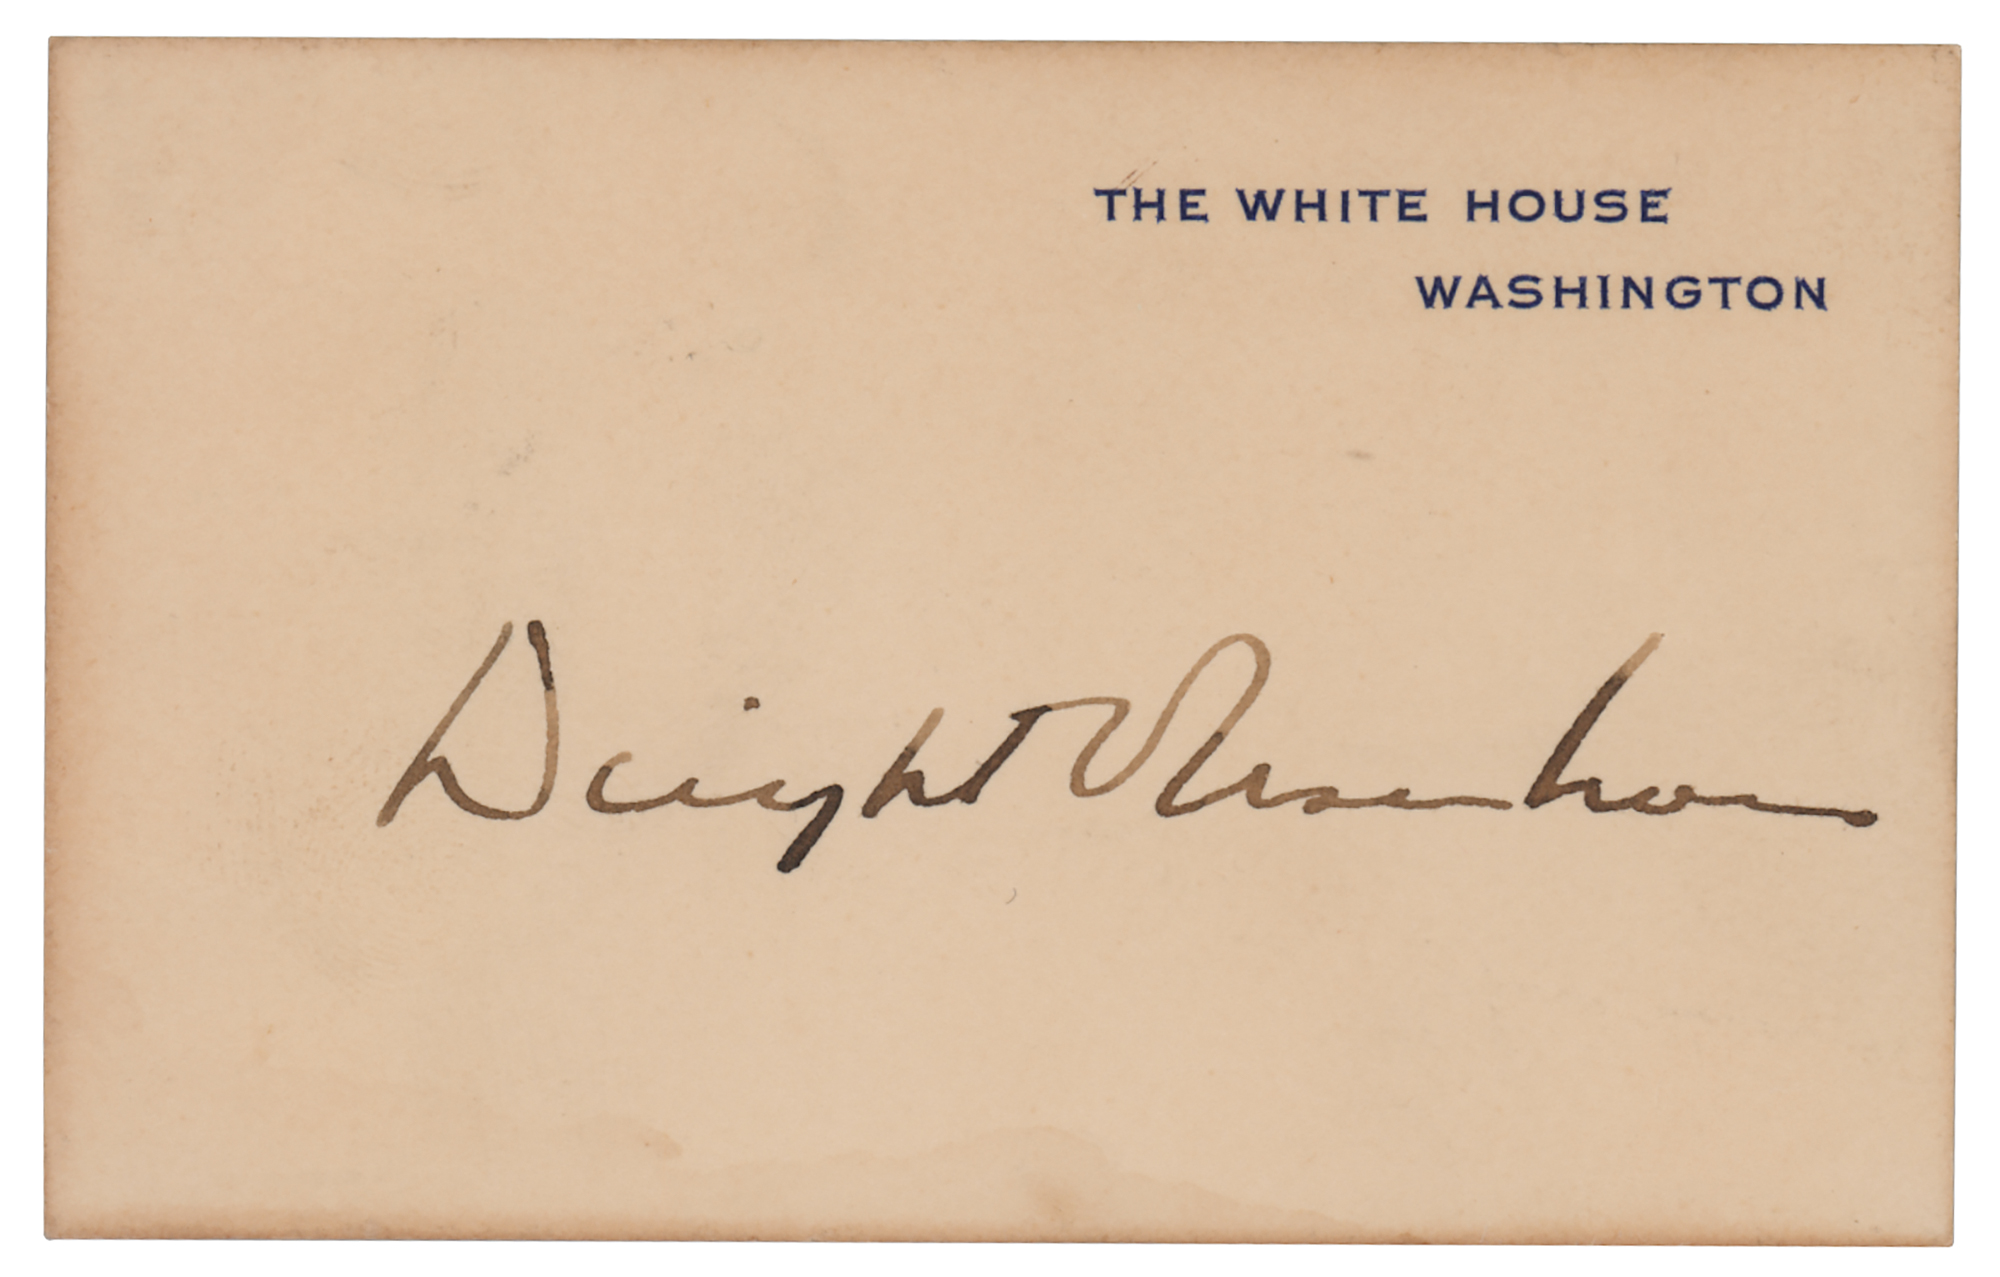 THE WHITE HOUSE
WASHINGTON
Dwight Eisenhower